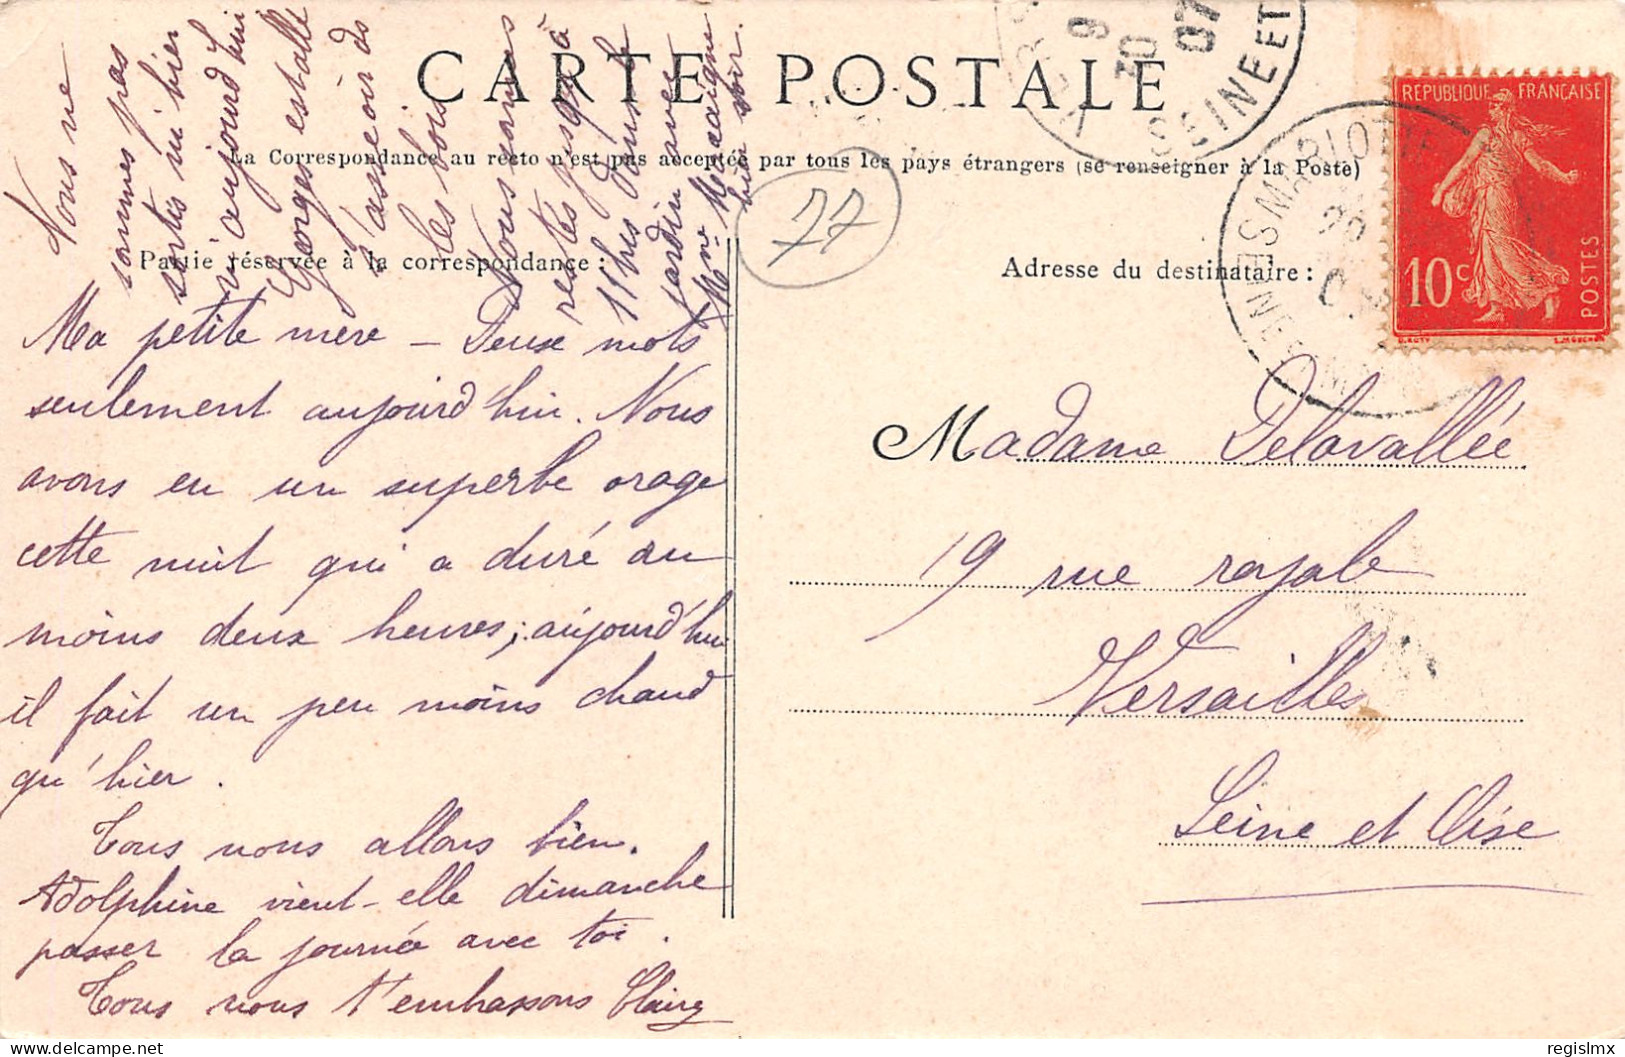 CARTE POSTALE
La Correspondance au recto n'est pas acceptée par tous les pays étrangers (se renseigner à la Poste)
Partie réservée à la correspondance :
Adresse du destinataire :
Ma petite mère — Deux mots
seulement aujourd'hui. Nous
avons eu un superbe orage
cette nuit qui a duré au
moins deux heures; aujourd'hui
il fait un peu moins chaud
qu'hier.
Tous nous allons bien.
Adolphine vient-elle dimanche
passer la journée avec toi.
Tous nous t'embrassons Claire
Nous ne
sommes pas
sortis ni hier
ni aujourd'hui
Georges est allé
s'asseoir ds
les bois
Nous sommes
restés jusqu'à
11h bis dans le
jardin avec
Mme Macaigne
hier soir.
77
Madame Delavallée
19 rue royale
Versailles
Seine et Oise
REPUBLIQUE FRANÇAISE
10c
POSTES
O.ROTY
L.MOUCHON
9
10
07
SEINE ET
MARLOTTE
SEINE
regislmx